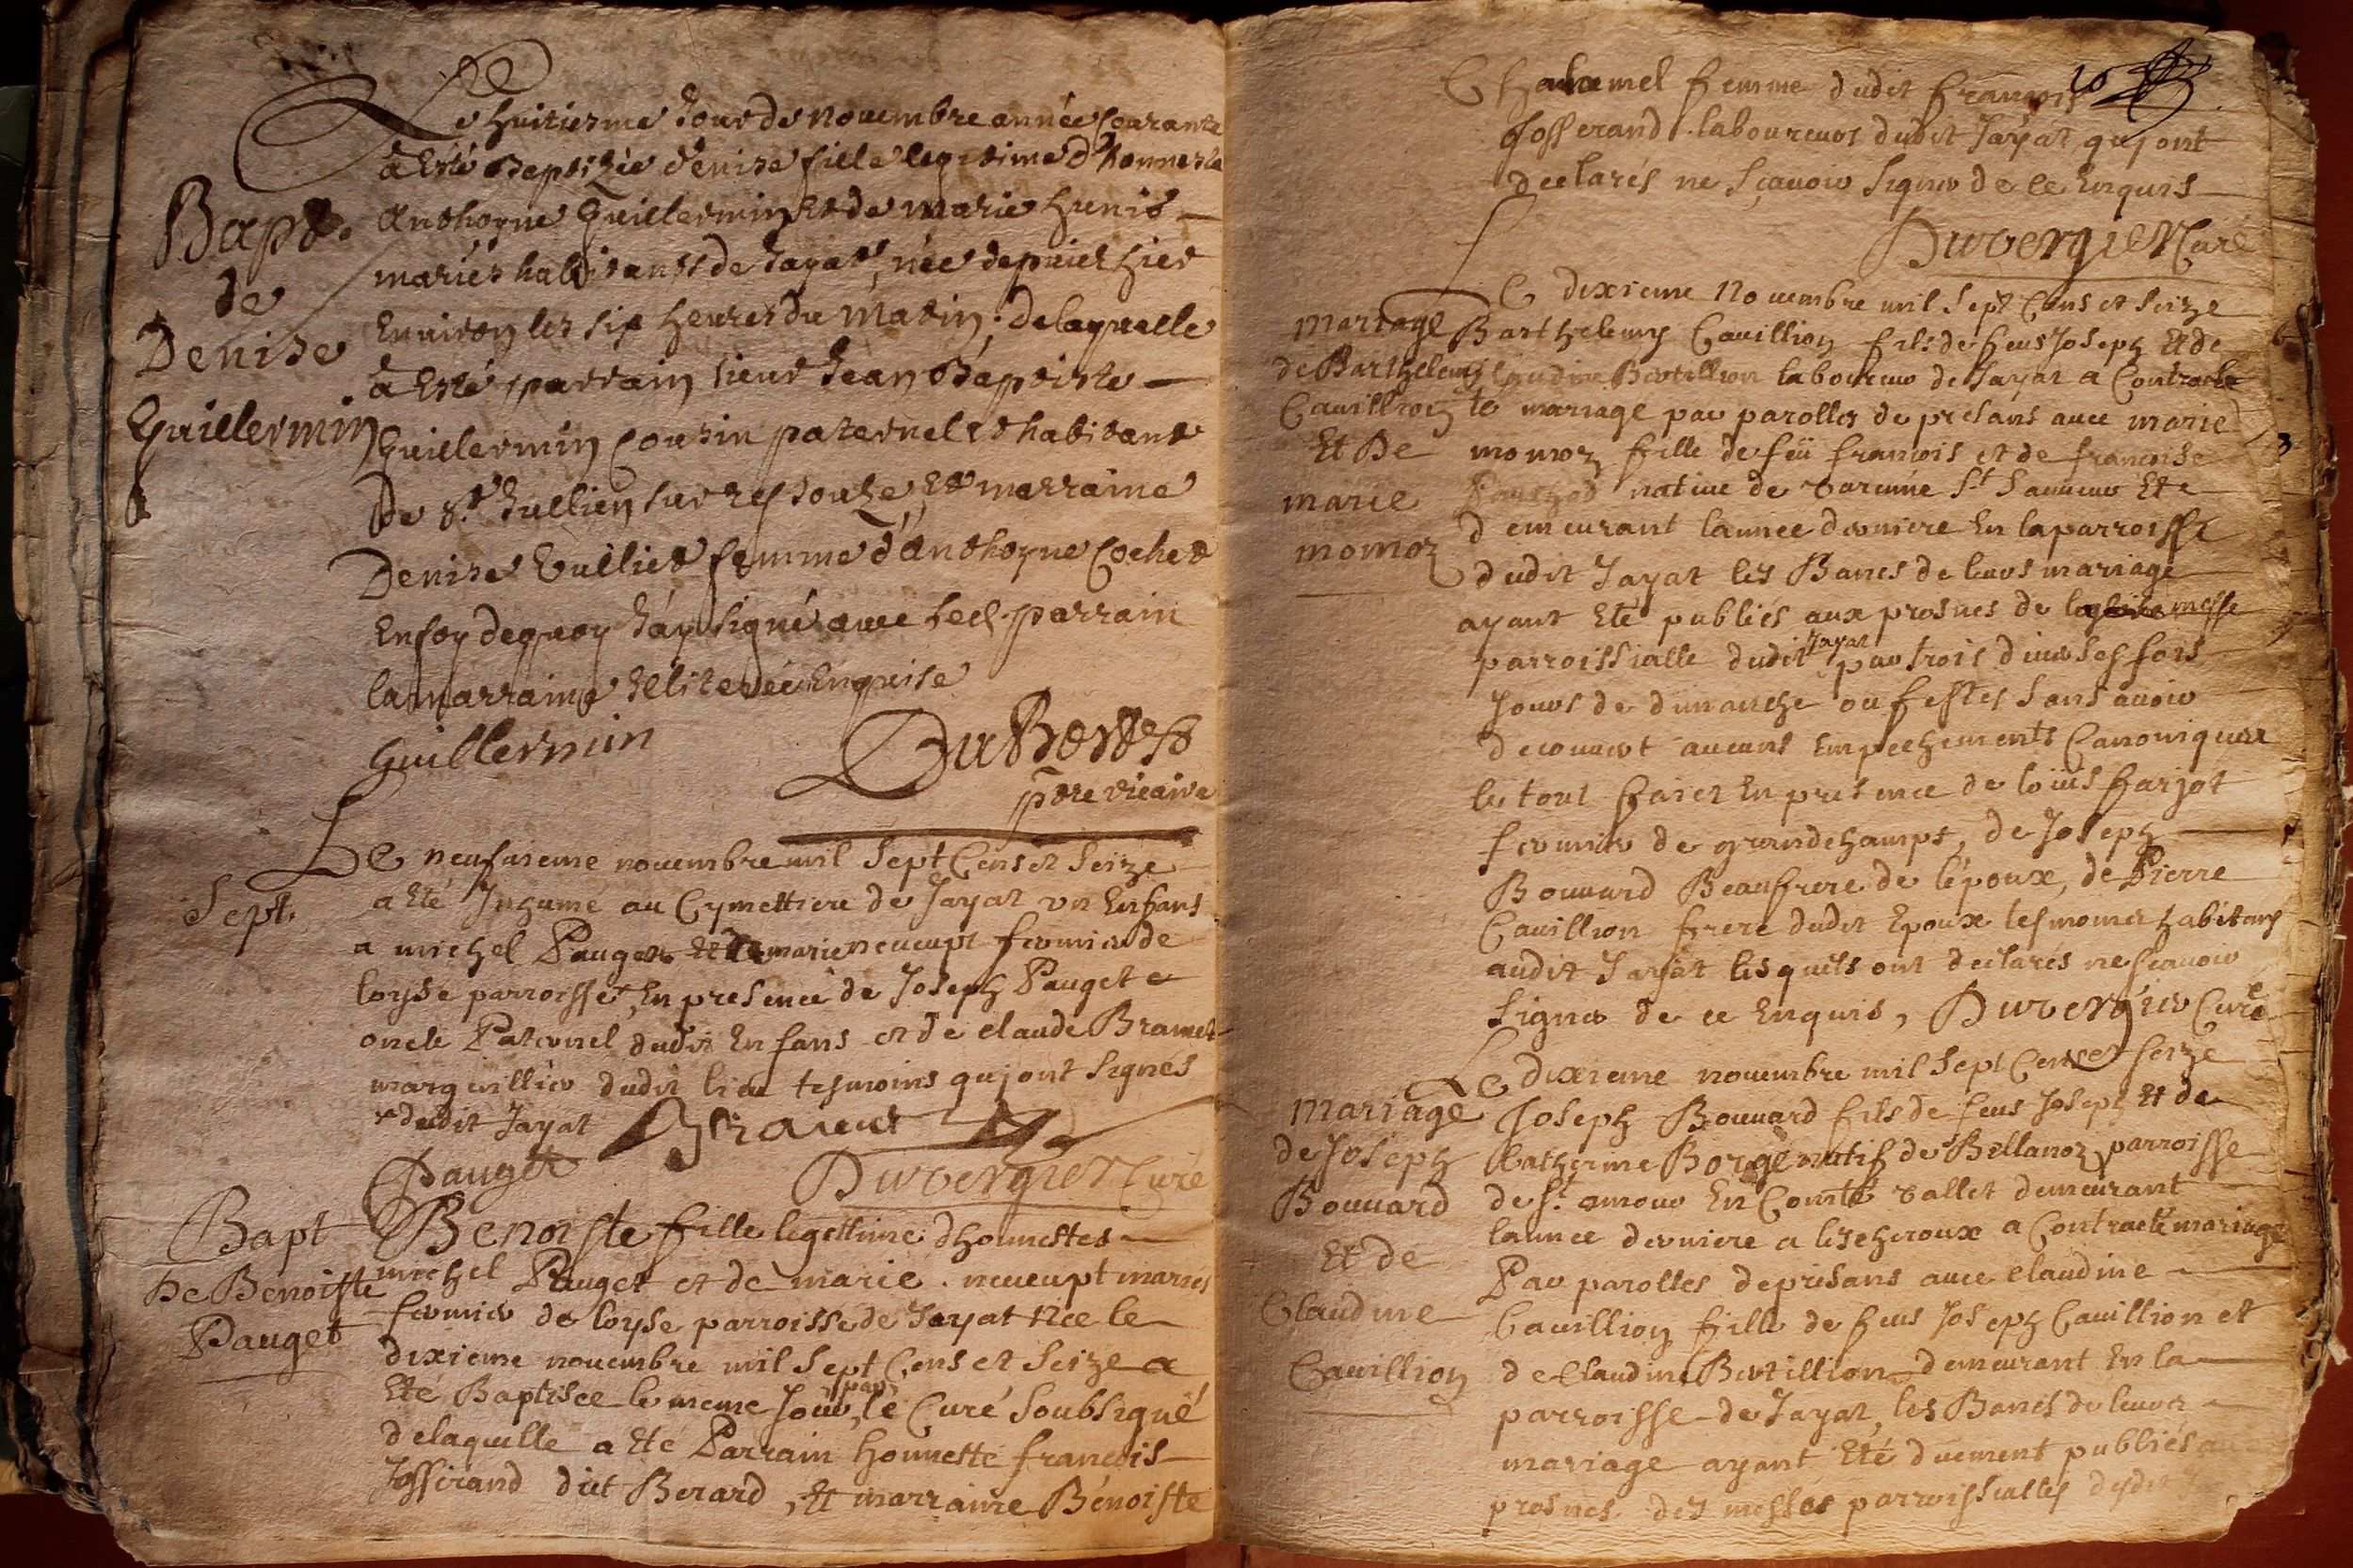 Le huitiesme Jour de nouembre année Courante
à Esté Baptizée denise fille legitime d'honneste
Bapt. Anthoyne Guillermin Et de marie hunis
mariés habitants de Jayat, née depuis hier
de
Enuiron les six heures du Matin; delaquelle
Denise
à Esté parrain sieur Jean Baptiste
Guillermin
Guillermin Cousin paternel et habitant
De St Jullien sur ressouze, Et marraine
Denise Vulliet femme d'Anthoyne Cochet
Enfoy dequoy J'ay signé auec led. parrain
la marraine Illiterée Enquise
Guillermin
pbre vicaire
Le neufuieme nouembre mil Sept Cens et Seize
Sept. a Eté Inhumé au Cymettiere de Jayat un Enfans
a michel Pauget et de marie neueupt fermier de
loyse parroisse + En presence de Joseph Pauget
oncle Paternel dudit Enfans et de claude Bramet
marguillier dudit lieu tesmoins quj ont Signés
+ dudit Jayat
Pauget
Duvergier Curé
Bapt
Benoiste fille legettime dhonnestes
De Benoiste
michel Pauget et de marie neueupt mariés
Pauget
fermier de loyse parroisse de Jayat née le
dixieme nouembre mil Sept Cens et Seize a
Eté Baptisée le meme Jour par le Curé Soubsigné
delaquelle a Eté Parrain honneste francois
Josserand dit Berard, Et marraine Bénoiste
10
Chanamel femme dudit francois
Josserand laboureurs dudit Jayat quj ont
declarés ne Sçauoir Signer de ce Enquis
Duvergier Curé
Le dixieme Nouembre mil Sept Cens et Seize
mariage
Barthelemy Cauillion fils de feus Joseph Et de
de Barthelemy
Claudine Bertillion laboureur de Jayat a Contracte
Cauillion
te mariage par parolles de presans auec marie
Et De
monoz fille de feü francois et de francoise
marie
natiue de varenne St Sauueur Et
monoz
demeurant lannee derniere En la parroisse
dudit Jayat les Bancs de leurs mariage
ayant Eté publiés aux prosnes de la messe
parroissialle dudit Jayat par trois diuerses fois
Jours de dimanche ou festes Sans auoir
decouuert aucuns Empechements Canoniques
le tout faict En presence de loüis farjot
fermier de grandchamps, de Joseph
Bouuard Beaufrere de l'époux, de Pierre
Cauillion frere dudit Epoux tesmoins habitans
audit Jayat lesquels ont declarés ne scauoir
Signer de ce Enquis, Duvergier Curé
Le dixieme nouembre mil Sept Cens et Seize
mariage
Joseph Bouuard fils de feus Joseph Et de
de Joseph
Catherine Borge natif de Bellanoz parroisse
Bouuard
de St. amour En Comté vallet demeurant
lannee derniere a lescheroux a Contracté mariage
Et de
Par parolles de presans auec claudine
Claudine
Cauillion fille de feus Joseph Cauillion et
Cauillion
de Claudine Bertillion demeurant En la
parroisse de Jayat, les Bancs de leurs
mariage ayant Eté duement publiés
prosnes des messes parroissialles